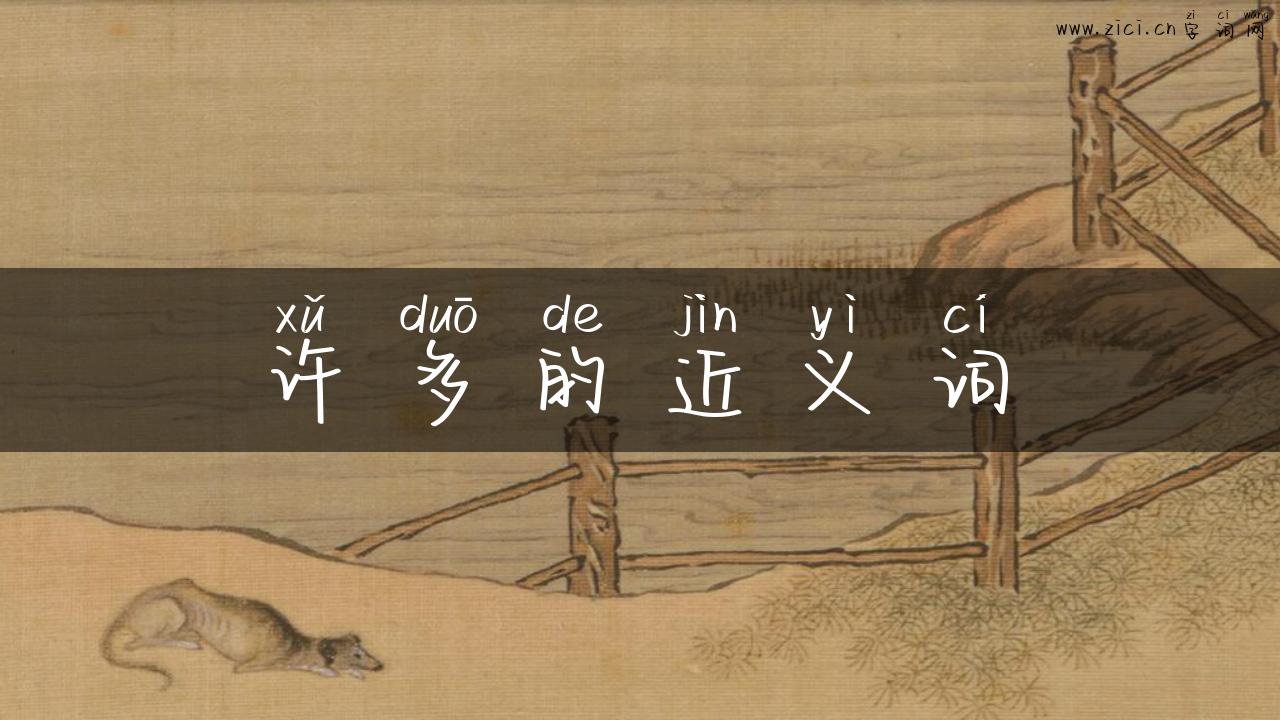 zì cí wǎng
www.zici.cn 字词网
xǔ duō de jìn yì cí
许多的近义词